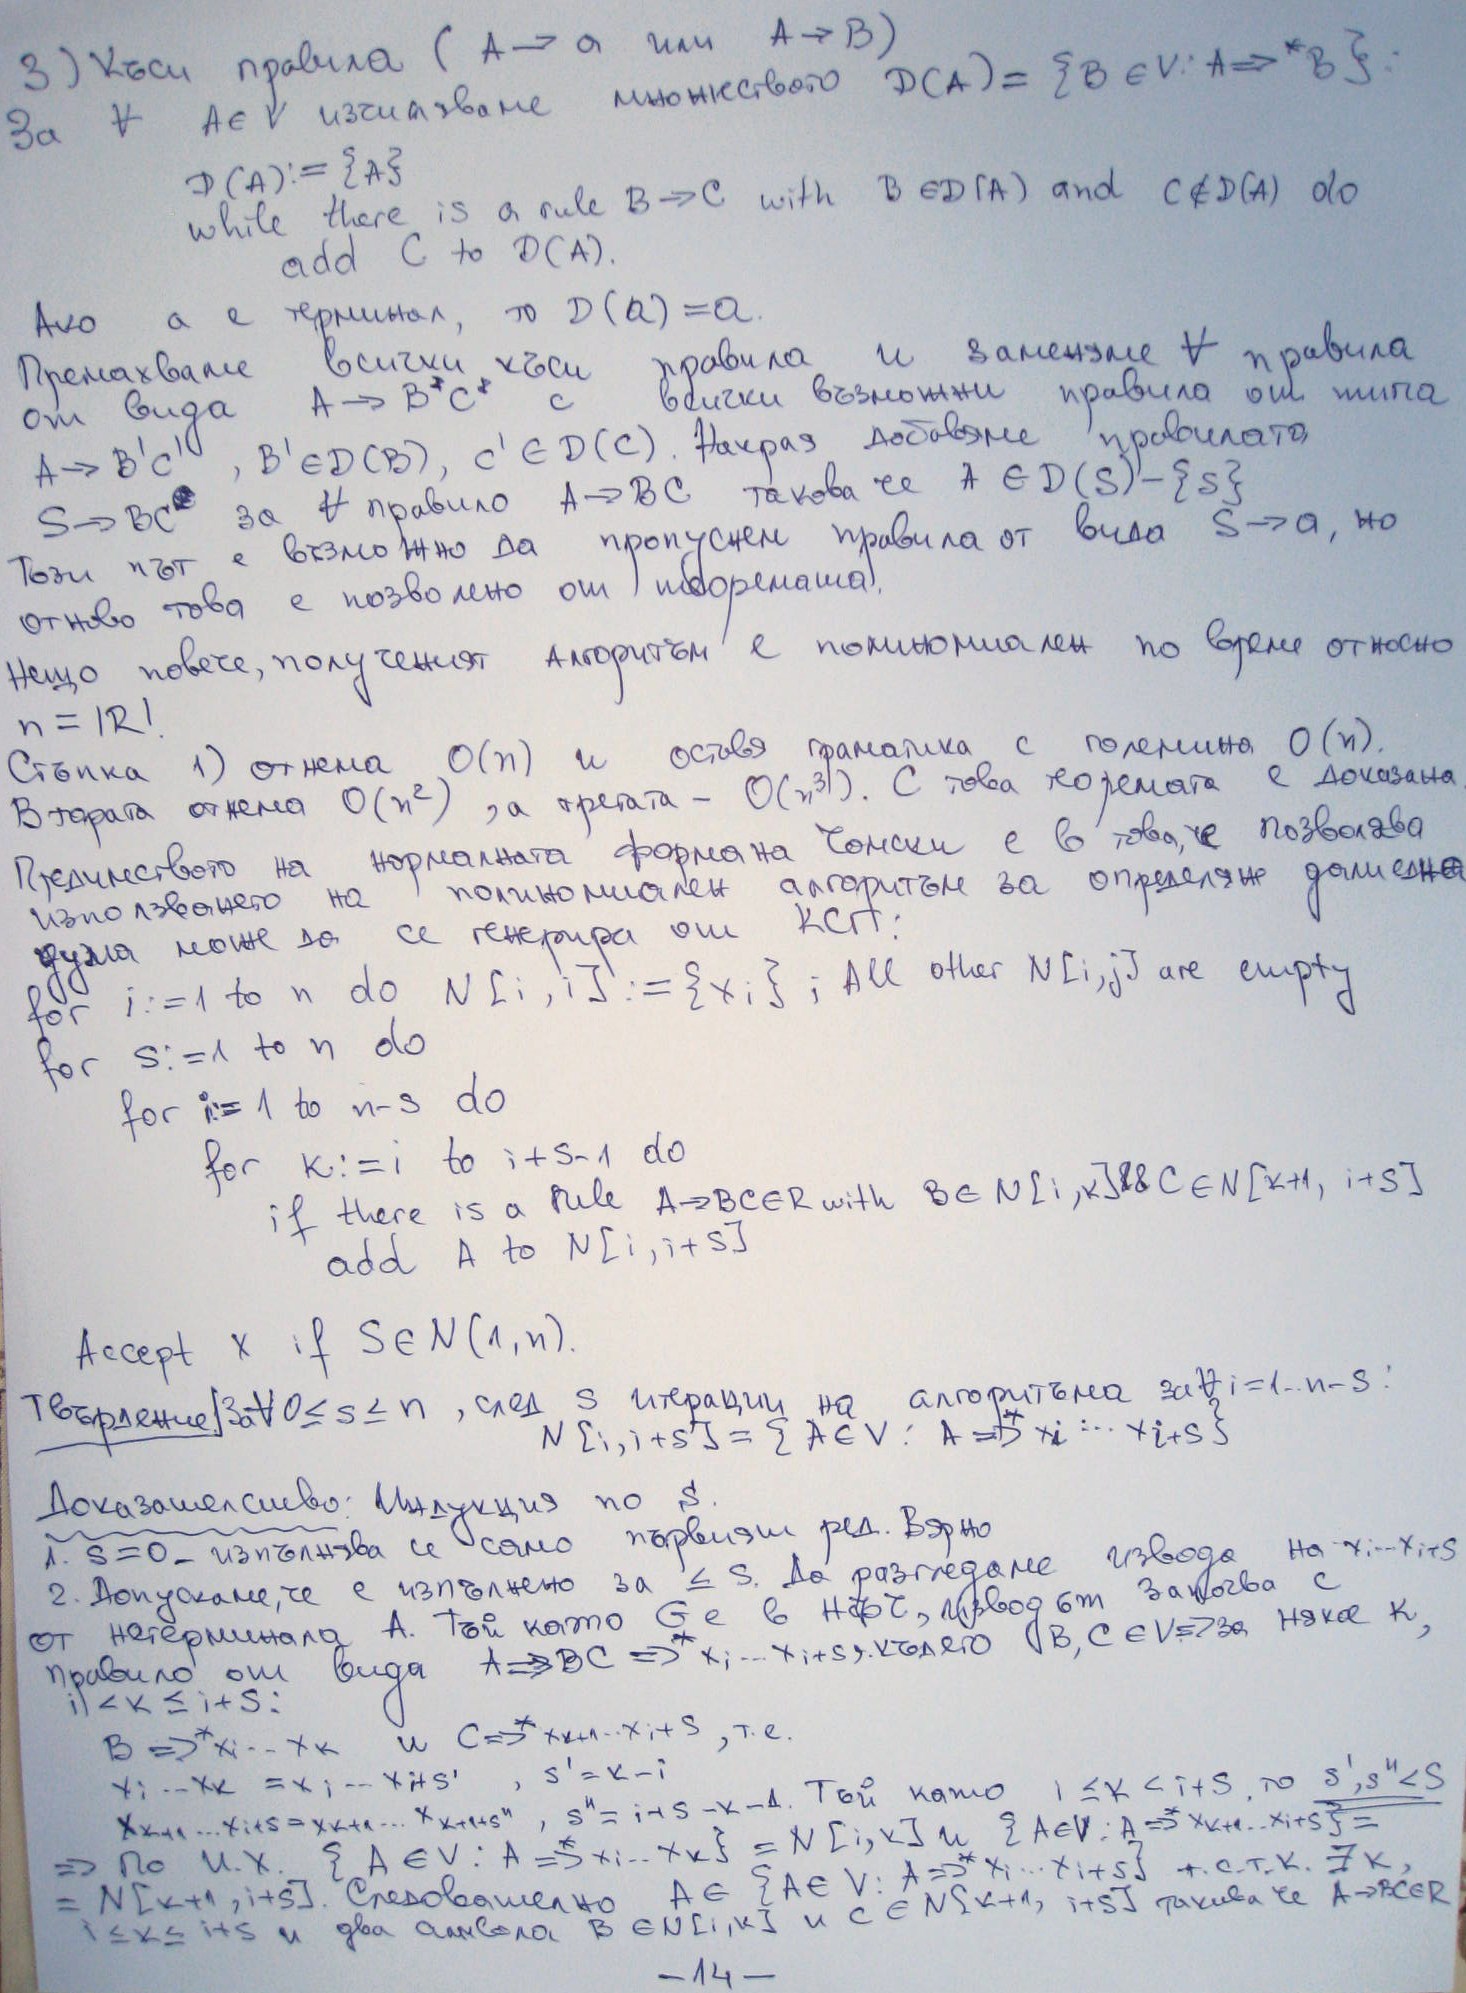 3) Къси правила ( A → a или A → B )
За ∀ A ∈ V изчисляваме множеството D(A) = {B ∈ V: A ⇒* B}:
D(A) := {A}
while there is a rule B → C with B ∈ D(A) and C ∉ D(A) do
add C to D(A).
Ако a е терминал, то D(a) = a.
Премахваме всички къси правила и заменяме ∀ правила
от вида A → B*C* с всички възможни правила от типа
A → B'C' , B' ∈ D(B), C' ∈ D(C). Накрая добавяме правилата
S → BC за ∀ правило A → BC такова че A ∈ D(S) – {S}
Този път е възможно да пропуснем правила от вида S → a, но
отново това е позволено от теоремата!
Нещо повече, полученият алгоритъм е полиномиален по време относно
n = |R|.
Стъпка 1) отнема O(n) и оставя граматика с големина O(n).
Втората отнема O(n²), а третата – O(n³). С това теоремата е доказана.
Предимството на нормалната форма на Чомски е в това, че позволява
използването на полиномиален алгоритъм за определяне дали една
дума може да се генерира от КСГ:
for i := 1 to n do N[i, i] := {xi} ; All other N[i,j] are empty
for s := 1 to n do
for i := 1 to n-s do
for k := i to i+s-1 do
if there is a rule A → BC ∈ R with B ∈ N[i, k] && C ∈ N[k+1, i+s]
add A to N[i, i+s]
Accept x if S ∈ N(1, n).
Твърдение] За ∀ 0 ≤ s ≤ n , след s итерации на алгоритъма за ∀ i = 1..n-s :
N[i, i+s] = {A ∈ V : A ⇒* xi ... xi+s}
Доказателство: Индукция по s.
1. s=0 – изпълнява се само първият ред. Вярно
2. Допускаме, че е изпълнено за ≤ s. Да разгледаме извода на xi...xi+s
от нетерминала A. Тъй като G е в НФЧ, извод от започва с
правило от вида A ⇒ BC ⇒* xi ... xi+s, където B, C ∈ V ⇒ за някое k,
i < k ≤ i+s:
B ⇒* xi ... xk и C ⇒* xk+1 ... xi+s , т.е.
xi ... xk = xi ... xi+s' , s' = k-i
xk+1 ... xi+s = xk+1 ... xk+1+s'' , s'' = i+s-k-1. Тъй като i ≤ k < i+s, то s', s'' < s
⇒ По И.Х. {A ∈ V : A ⇒* xi ... xk} = N[i, k] и {A ∈ V : A ⇒* xk+1 ... xi+s} =
= N[k+1, i+s]. Следователно A ∈ {A ∈ V : A ⇒* xi ... xi+s} т.с.т.к. ∃ k,
i ≤ k ≤ i+s и два символа B ∈ N[i, k] и C ∈ N[k+1, i+s] такива че A → BC ∈ R
– 14 –